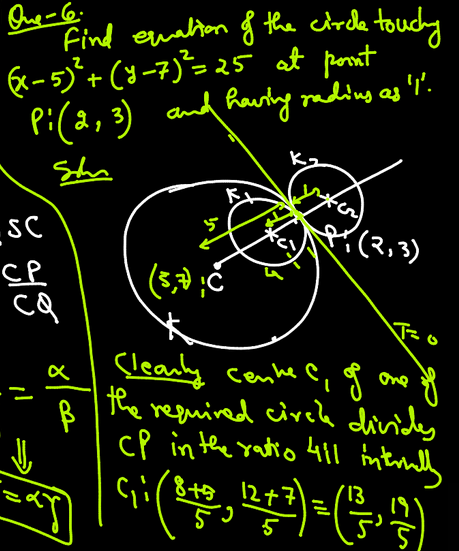 Que-6.
Find equation of the circle touching
(x-5)² + (y-7)² = 25 at point
P:(2, 3) and having radius as '1'.
Soln
K₂
K₁
SC
5
C₂
C₁
P:(2,3)
CP
CQ
(5,7):C
4
T=0
= α
β
Clearly centre C₁ of one of
the required circle divides
CP in the ratio 4:1 internally
⇓
= αγ
C₁: (8+5/5, 12+7/5) = (13/5, 19/5)